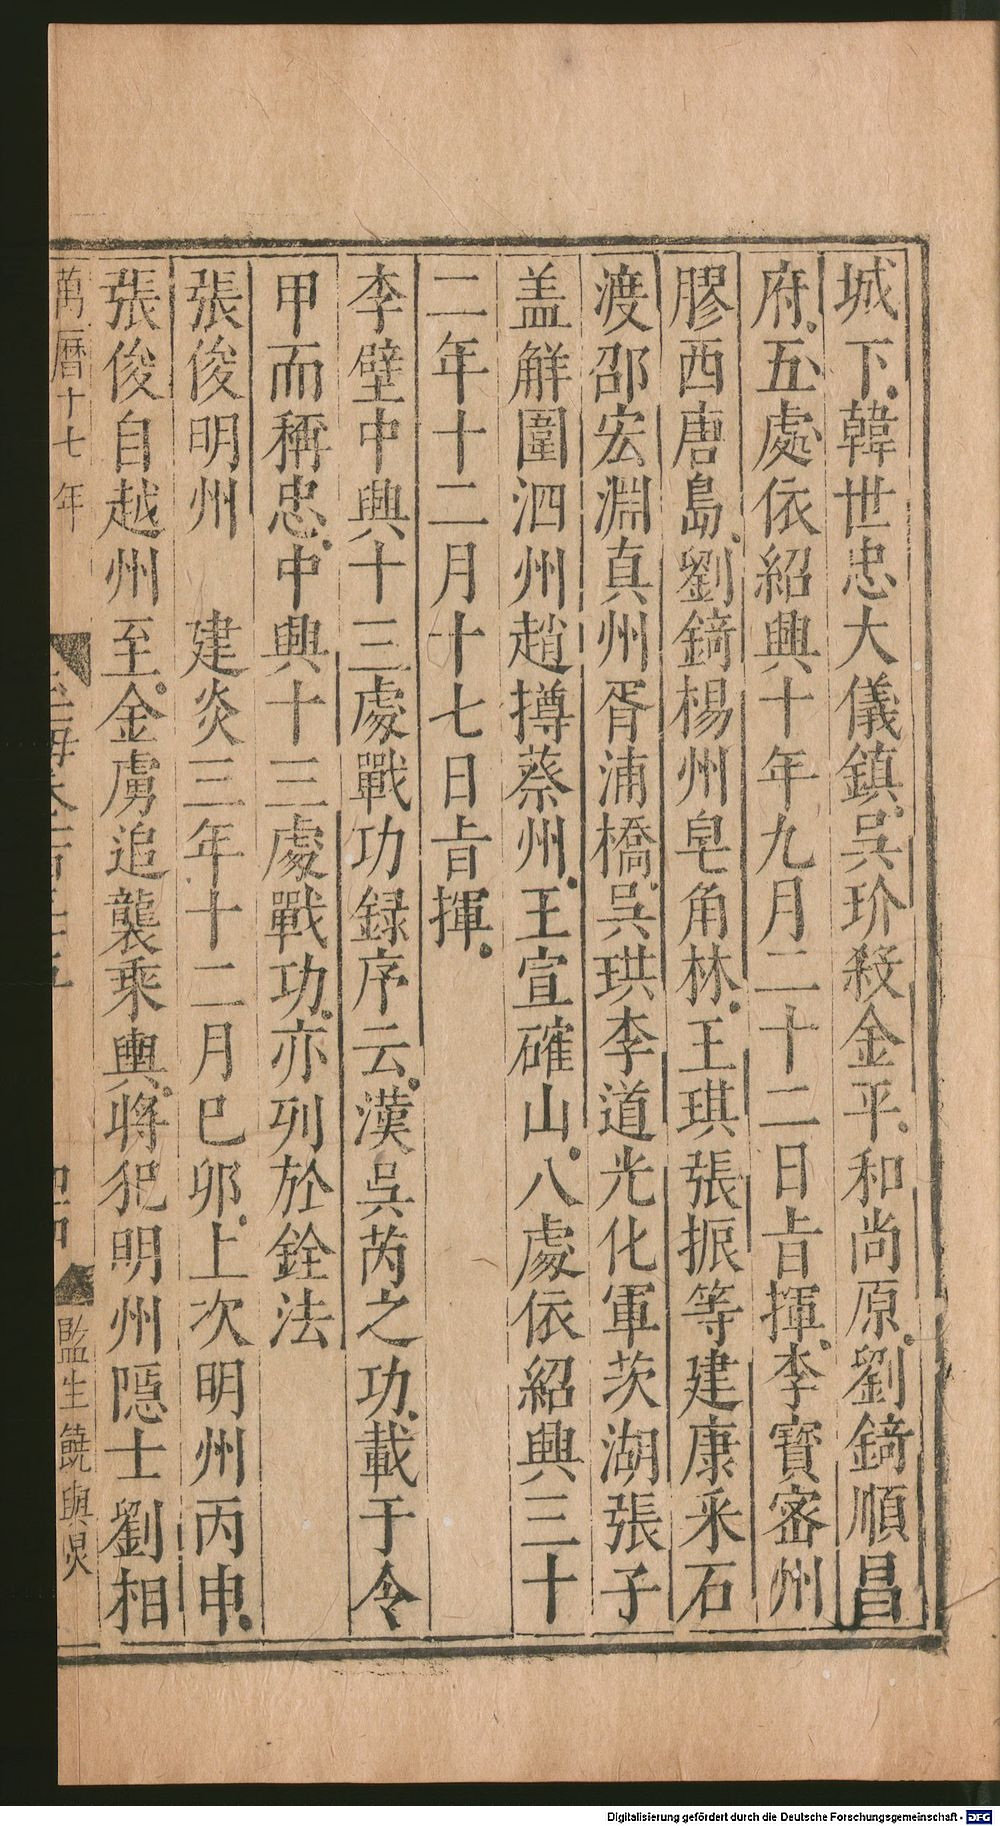 城下韓世忠大儀鎮吳玠殺金平和尚原劉錡順昌
府五處依紹興十年九月二十二日㫖揮李寳密州
膠西唐島劉錡楊州皂角林王琪張振等建康采石
渡邵宏淵真州胥浦橋吳珙李道光化軍茨湖張子
盖觧圍泗州趙撙蔡州王宣確山八處依紹興三十
二年十二月十七日㫖揮
李壁中興十三處戰功録序云漢吳芮之功載于令
甲而稱忠中興十三處戰功亦列於銓法
張俊明州 建炎三年十二月巳卯上次明州丙申
張俊自越州至金虜追襲乗輿將犯明州隱士劉相
萬曆十七年
監生饒與
Digitalisierung gefördert durch die Deutsche Forschungsgemeinschaft - DFG